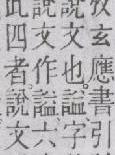 攷玄應書引
說文也。謚字
說文作謚六
此四者。說文